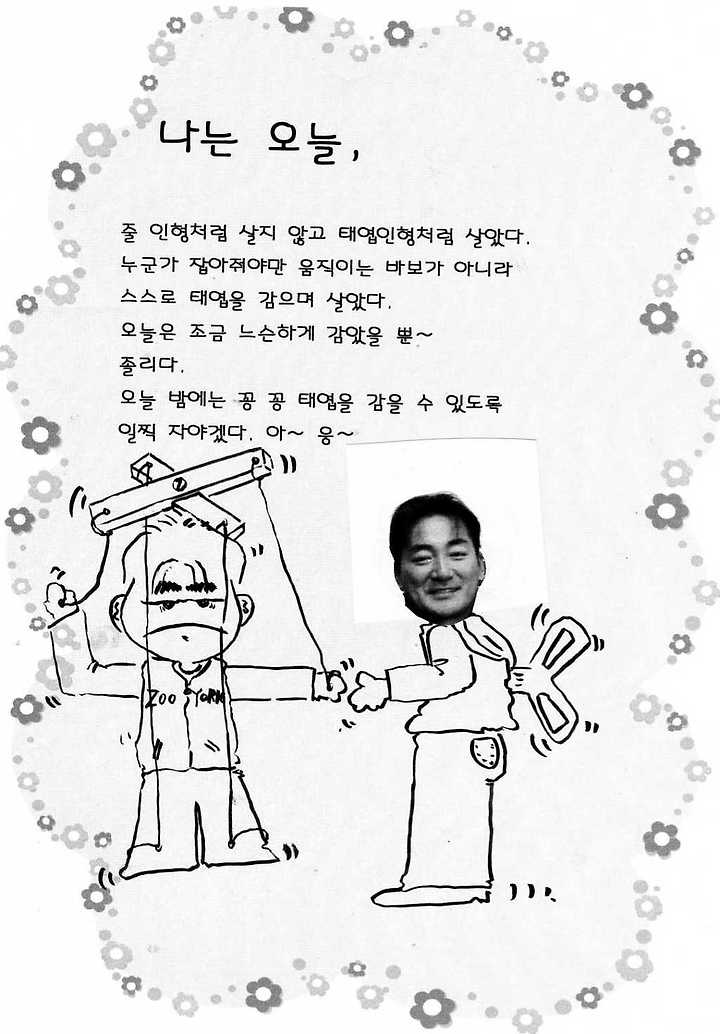 나는 오늘,
줄 인형처럼 살지 않고 태엽인형처럼 살았다.
누군가 잡아줘야만 움직이는 바보가 아니라
스스로 태엽을 감으며 살았다.
오늘은 조금 느슨하게 감았을 뿐~
졸리다.
오늘 밤에는 꽁 꽁 태엽을 감을 수 있도록
일찍 자야겠다. 아~ 웅~
ZOO YORK